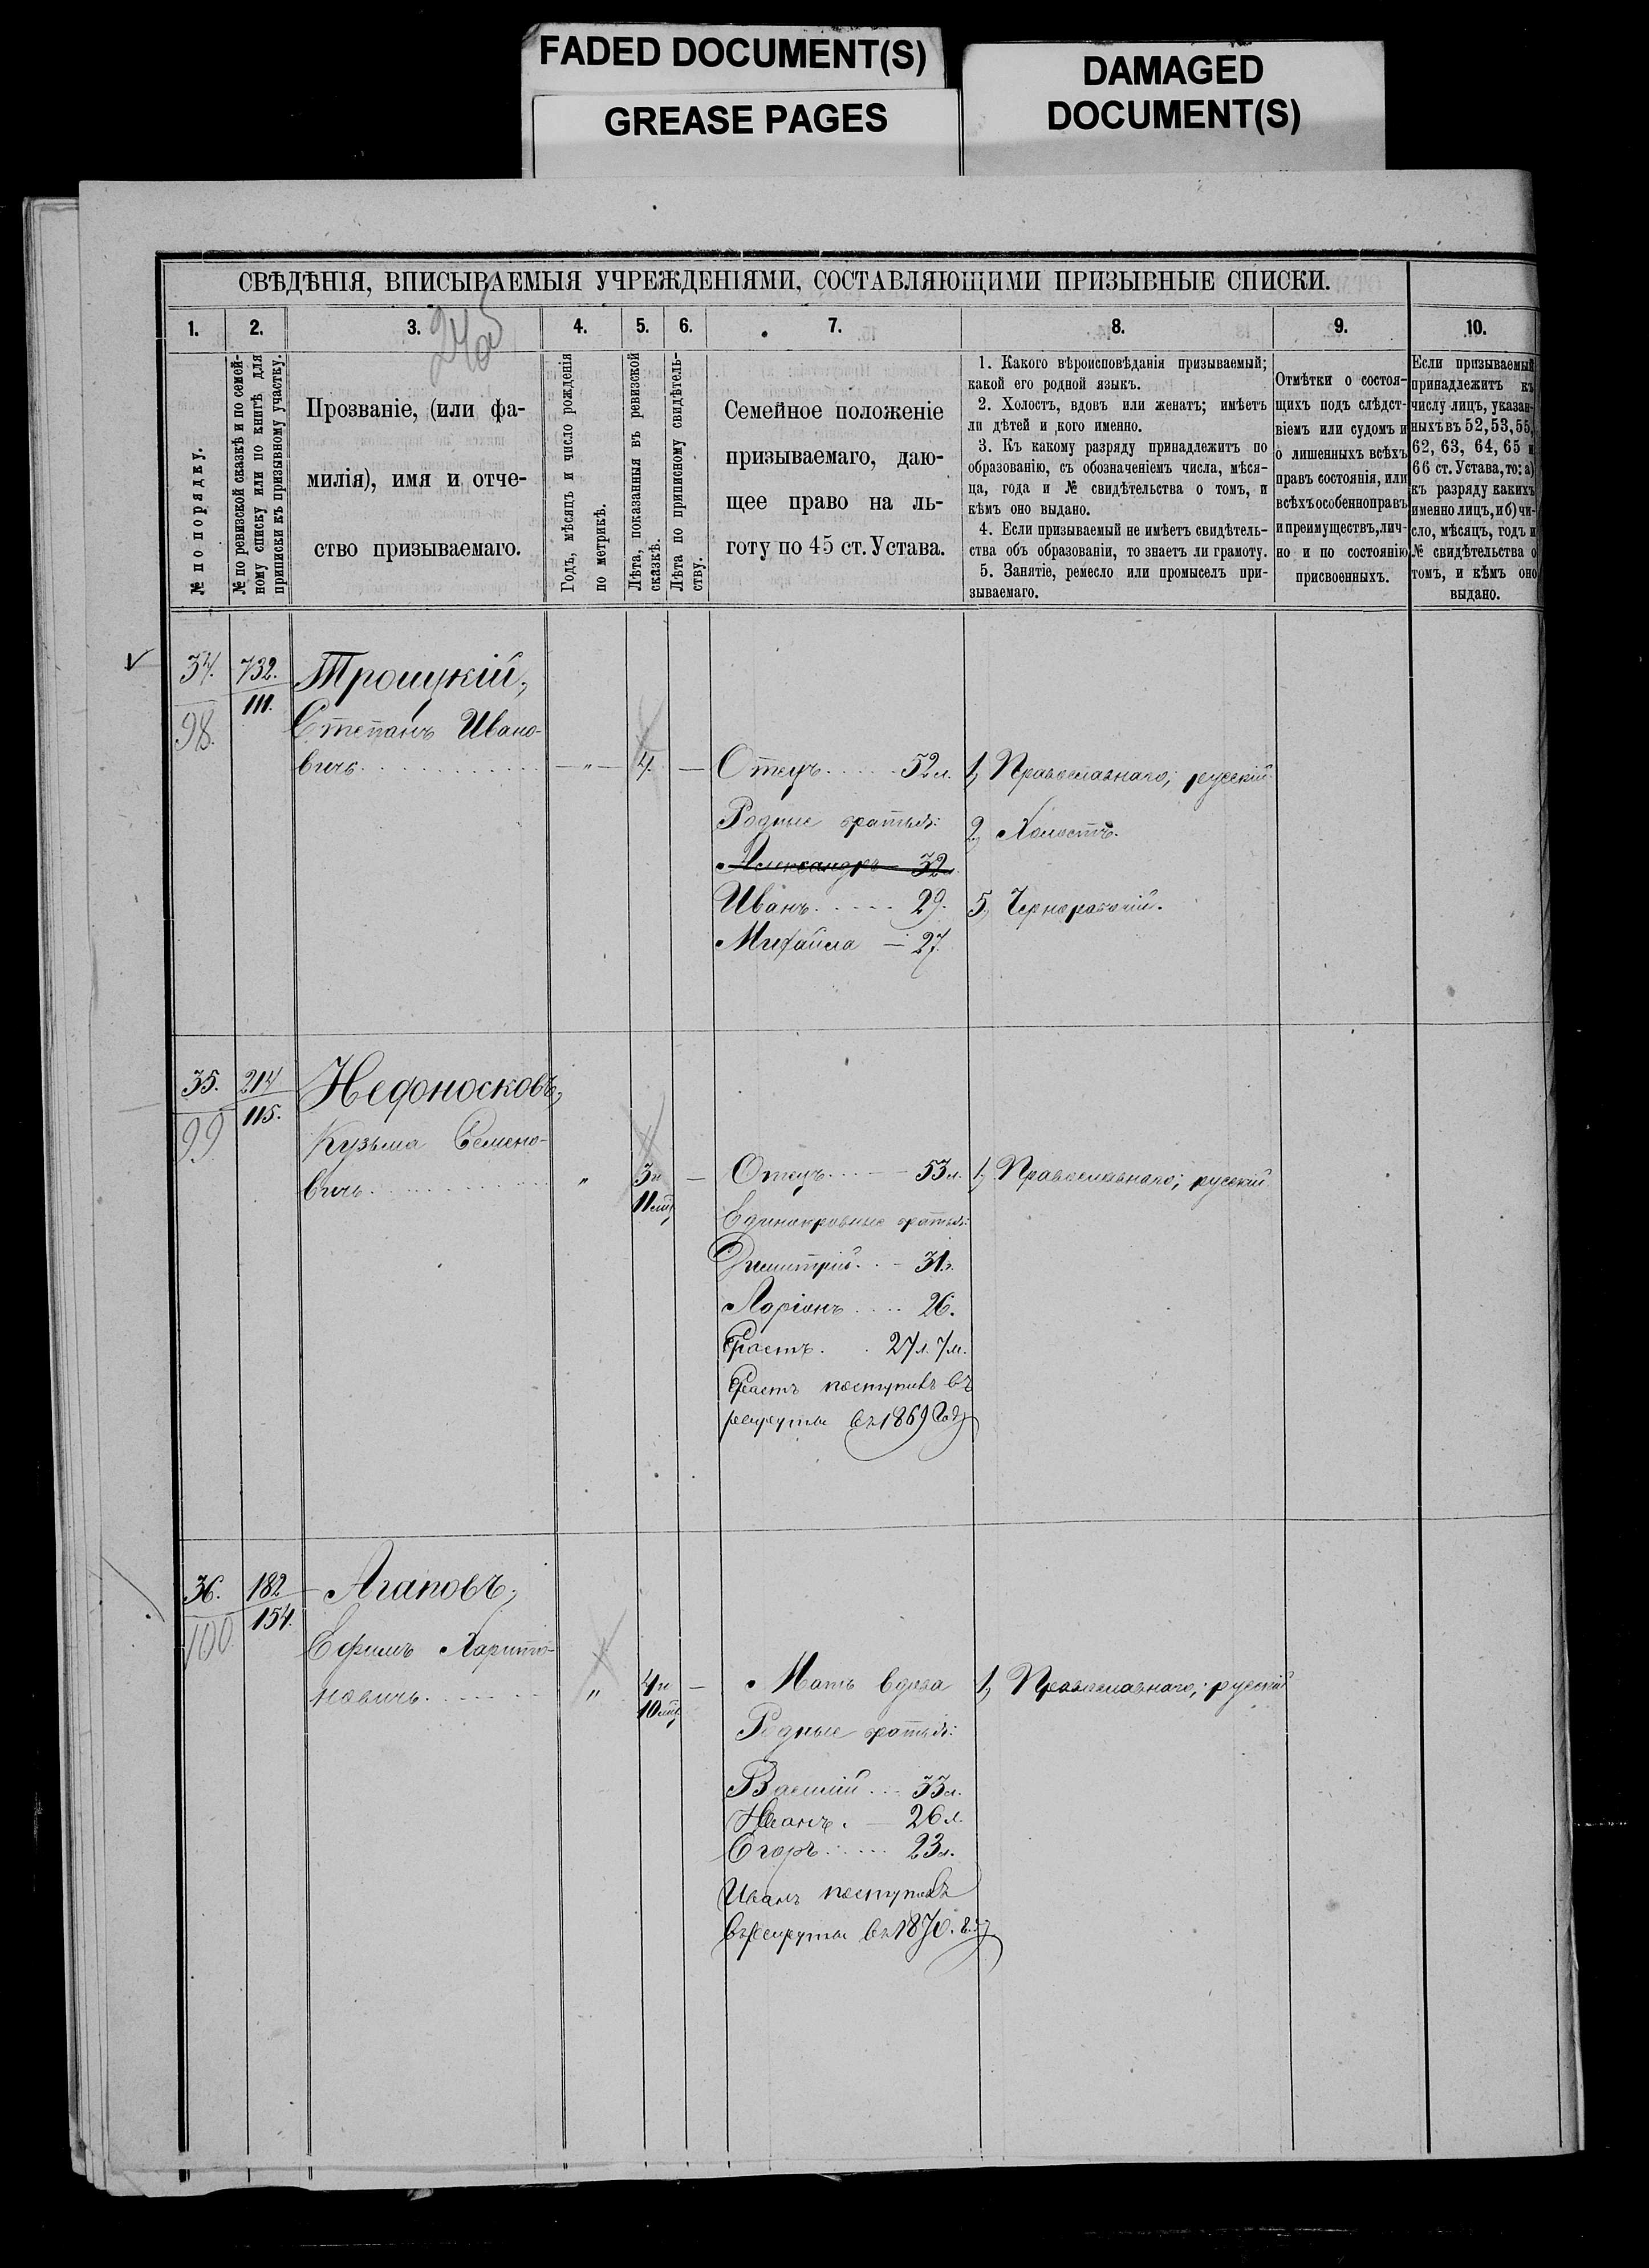 FADED DOCUMENT(S)
GREASE PAGES
DAMAGED
DOCUMENT(S)
СВѢДѢНІЯ, ВПИСЫВАЕМЫЯ УЧРЕЖДЕНІЯМИ, СОСТАВЛЯЮЩИМИ ПРИЗЫВНЫЕ СПИСКИ.
1. 2. 3. 4. 5. 6. 7. 8. 9. 10.
№ по порядку.
№ по ревизской сказкѣ и по семей-
ному списку или по книгѣ для
приписки къ призывному участку.
Прозваніе, (или фа-
милія), имя и отче-
ство призываемаго.
Годъ, мѣсяцъ и число рожденія
по метрикѣ.
Лѣта, показанныя въ ревизской
сказкѣ.
Лѣта по приписному свидѣтель-
ству.
Семейное положеніе
призываемаго, даю-
щее право на ль-
готу по 45 ст. Устава.
1. Какого вѣроисповѣданія призываемый;
какой его родной языкъ.
2. Холостъ, вдовъ или женатъ; имѣетъ
ли дѣтей и кого именно.
3. Къ какому разряду принадлежитъ по
образованію, съ обозначеніемъ числа, мѣся-
ца, года и № свидѣтельства о томъ, и
кѣмъ оно выдано.
4. Если призываемый не имѣетъ свидѣтель-
ства объ образованіи, то знаетъ ли грамоту.
5. Занятіе, ремесло или промыселъ при-
зываемаго.
Отмѣтки о состоя-
щихъ подъ слѣдст-
віемъ или судомъ и
о лишенныхъ всѣхъ
правъ состоянія, или
всѣхъ особенно правъ
и преимуществъ, лич-
но и по состоянію
присвоенныхъ.
Если призываемый
принадлежитъ къ
числу лицъ, указан-
ныхъ въ 52, 53, 55,
62, 63, 64, 65 и
66 ст. Устава, то: а)
къ разряду какихъ
именно лицъ, и б) чи-
сло, мѣсяцъ, годъ и
№ свидѣтельства о
томъ, и кѣмъ оно
выдано.
34. 732. Троицкій,
98. 111.
Степанъ Ивано-
вичъ - " - 4. - Отецъ 52 л. 1, Православнаго; русскій
Родные братья: 2, Холостъ.
Александръ 32 л.
Иванъ 29. 5, Чернорабочій.
Михайла - 27.
35. 214 Недоносковъ,
99 115.
Кузьма Семено-
вичъ " 3 и - Отецъ 53 л. 1, Православнаго; русскій
11 мц
Единокровные братья:
Димитрій 31 л.
Ларіонъ 26.
Ерастъ. 27 л. 7 м.
Ерастъ поступилъ въ
рекруты въ 1869 году
36. 182 Агаповъ,
100 154.
Ефимъ Харито-
новичъ " 4 и - Мать вдова 1, Православнаго; русскій
10 мц
Родные братья:
Василій 33 л.
Иванъ. - 26 л.
Егоръ 23 л.
Иванъ поступилъ
въ рекруты въ 1870. г.